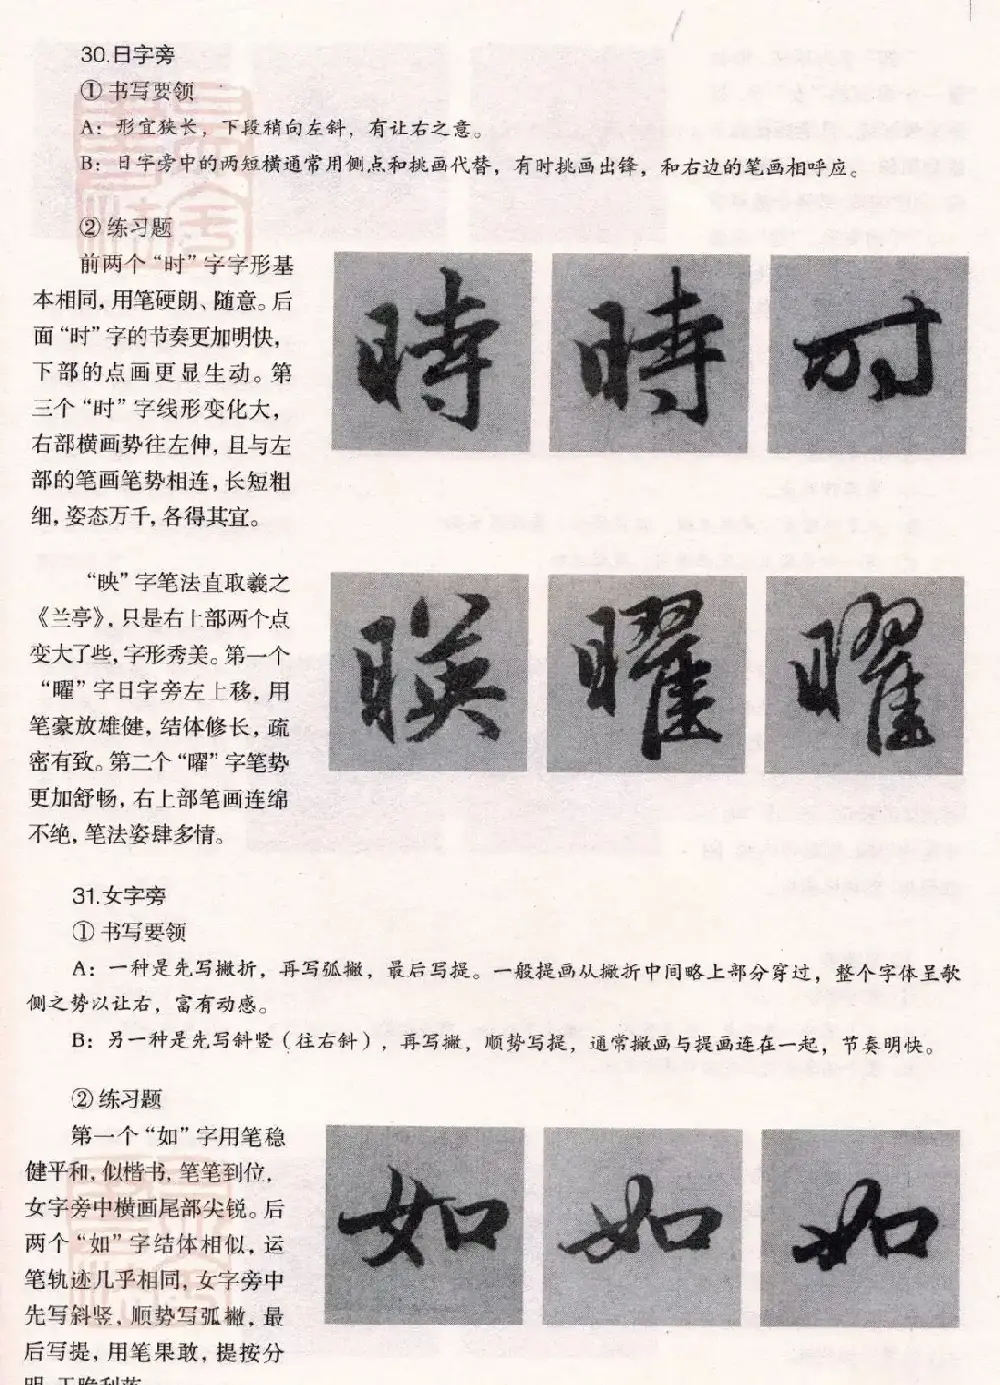 30.日字旁
① 书写要领
A：形宜狭长，下段稍向左斜，有让右之意。
B：日字旁中的两短横通常用侧点和挑画代替，有时挑画出锋，和右边的笔画相呼应。
② 练习题
前两个“时”字字形基
本相同，用笔硬朗、随意。后
面“时”字的节奏更加明快，
下部的点画更显生动。第
三个“时”字线形变化大，
右部横画势往左伸，且与左
部的笔画笔势相连，长短粗
细，姿态万千，各得其宜。
時 時 时
“映”字笔法直取羲之
《兰亭》，只是右上部两个点
变大了些，字形秀美。第一个
“曜”字日字旁左上移，用
笔豪放雄健，结体修长，疏
密有致。第二个“曜”字笔势
更加舒畅，右上部笔画连绵
不绝，笔法姿肆多情。
暎 曜 曜
31.女字旁
① 书写要领
A：一种是先写撇折，再写弧撇，最后写提。一般提画从撇折中间略上部分穿过，整个字体呈欹
侧之势以让右，富有动感。
B：另一种是先写斜竖（往右斜），再写撇，顺势写提，通常撇画与提画连在一起，节奏明快。
② 练习题
第一个“如”字用笔稳
健平和，似楷书，笔笔到位，
女字旁中横画尾部尖锐。后
两个“如”字结体相似，运
笔轨迹几乎相同，女字旁中
先写斜竖，顺势写弧撇，最
后写提，用笔果敢，提按分
如 如 如